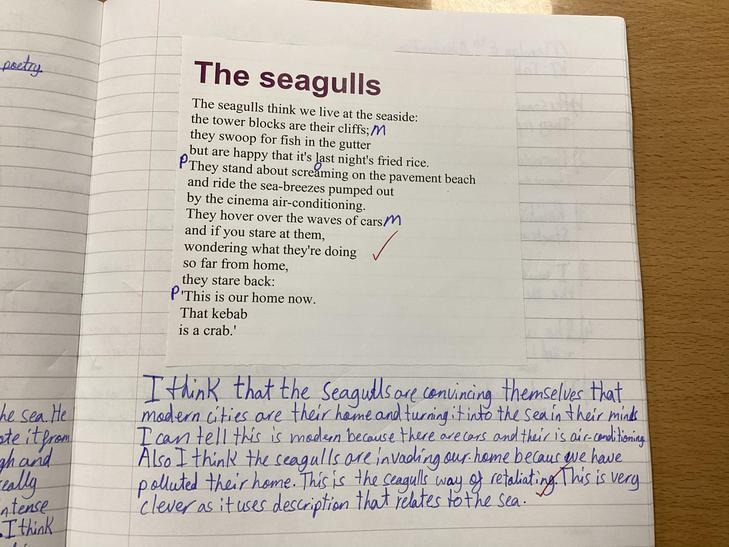 poetry
The seagulls
The seagulls think we live at the seaside:
the tower blocks are their cliffs; m
they swoop for fish in the gutter
but are happy that it's last night's fried rice.
P They stand about screaming on the pavement beach
o
and ride the sea-breezes pumped out
by the cinema air-conditioning.
They hover over the waves of cars m
and if you stare at them,
wondering what they're doing
so far from home,
they stare back:
P 'This is our home now.
That kebab
is a crab.'
I think that the Seagulls are convincing themselves that
modern cities are their home and turning it into the sea in their minds
I can tell this is modern because there are cars and their is air-conditioning
Also I think the seagulls are invading our home becaus we have
polluted their home. This is the seagulls way of retaliating. This is very
clever as it uses description that relates to the sea.
he sea. He
ote it from
gh and
eally
ntense
. I think